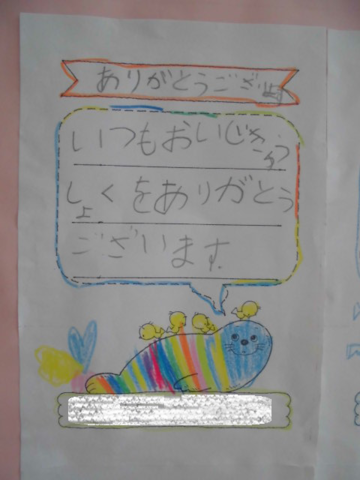 ありがとうございます
いつもおいじきゅう
しょくをありがとう
ございます。